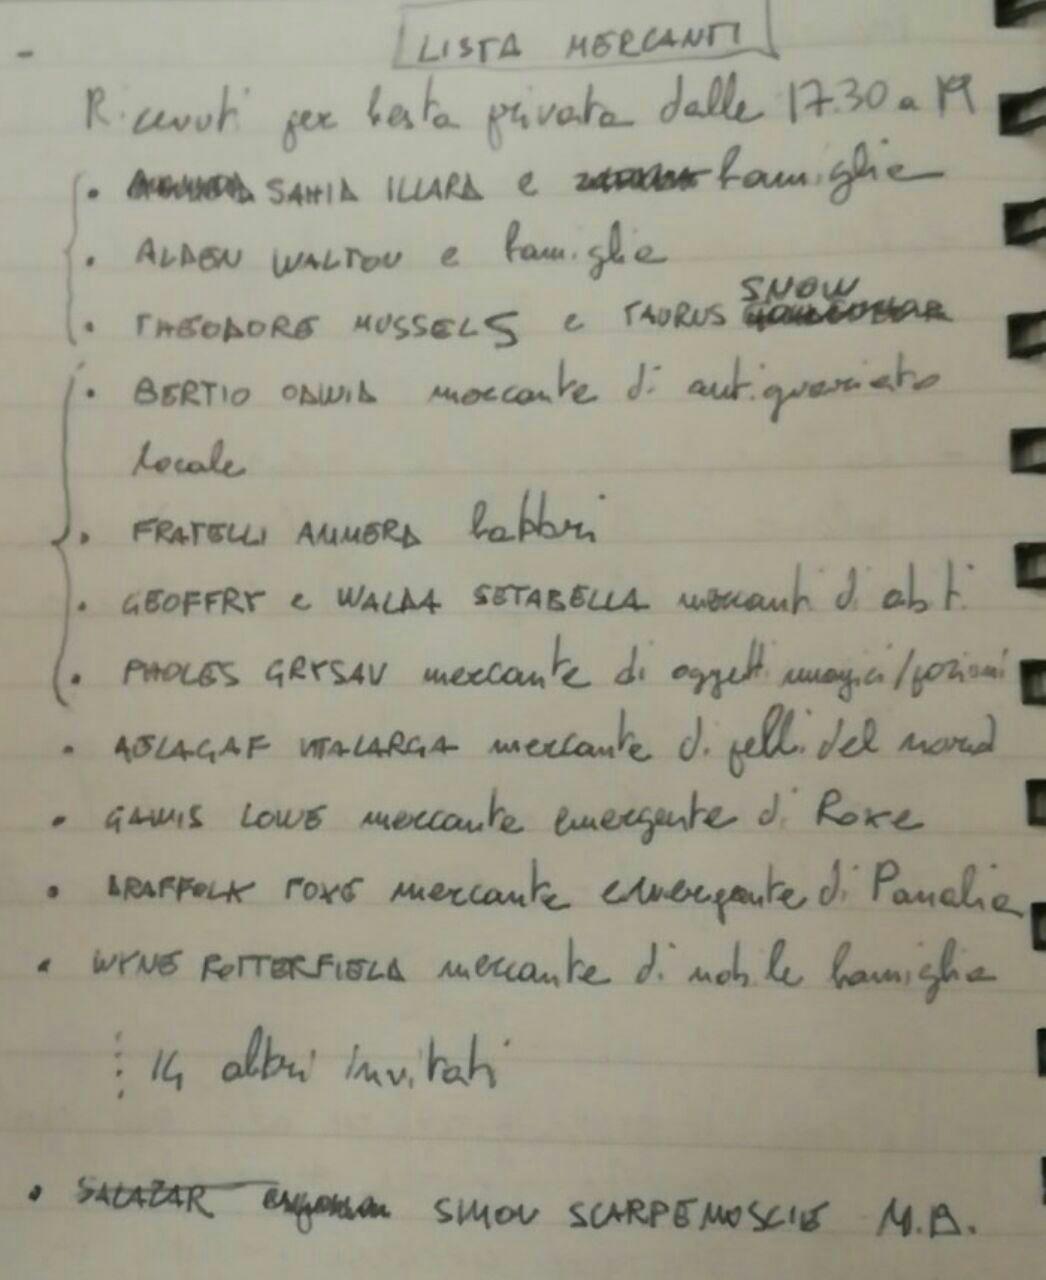 LISTA MERCANTI
Ricevuti per festa privata dalle 17.30 a 19
• SAHID ILLARD e famiglie
• ALDEN WALTON e famiglie
• THEODORE MUSSELS e TAURUS SNOW
• BERTIO mercante di antiquariato
locale
• FRATELLI AMMERA fabbri
• GEOFFRY e WALDA SETABELLA mercanti di abiti
• PHOLES GRYSAV mercante di oggetti magici/pozioni
• VITALARGA mercante di pelli del nord
• GAMIS LOWE mercante emergente di Roxe
• DRAFFOLK FOXE mercante emergente di Panalia
• WYNE POTTERFIELD mercante di nobile famiglia
⋮ 14 altri invitati
• SALAZAR SIMON SCARPEMOSCIE N.B.